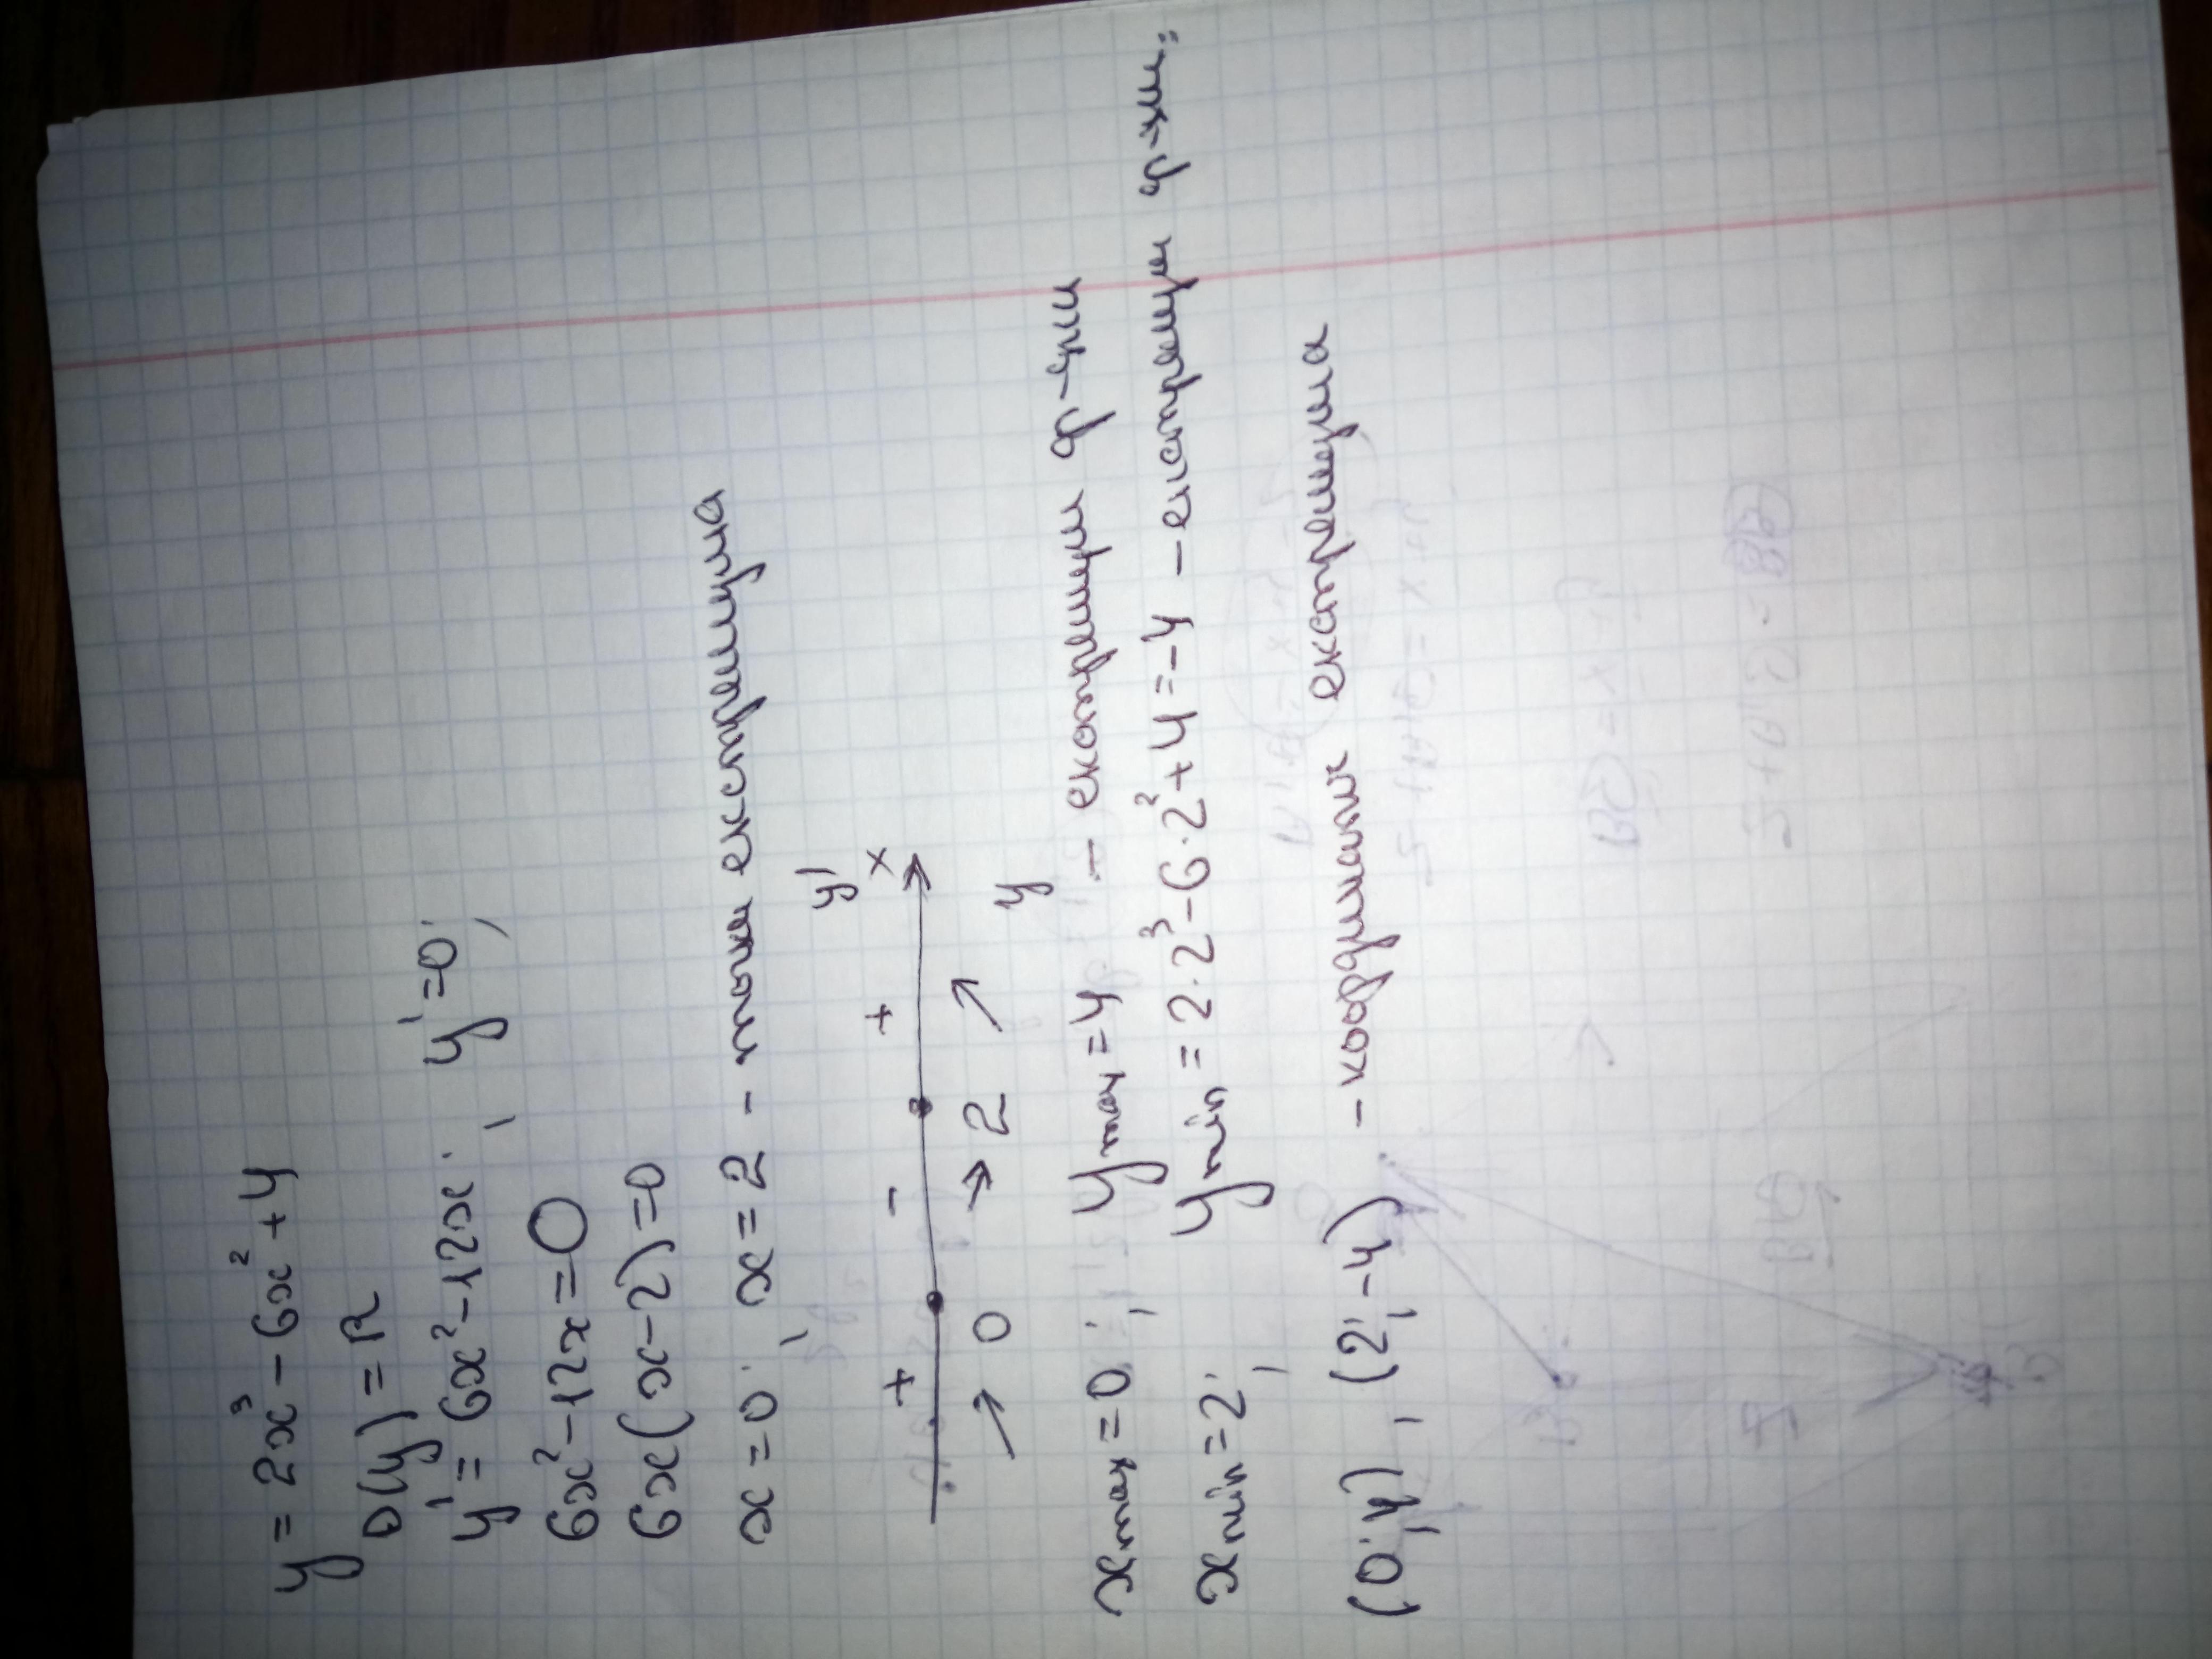 y = 2x³ - 6x² + 4
D(y) = R
y' = 6x² - 12x; y' = 0;
6x² - 12x = 0
6x(x - 2) = 0
x = 0; x = 2 - точки екстремума
+ - + y'
x
↗ 0 ↘ 2 ↗ y
x max = 0; y max = 4 - екстремум ф-ции
x min = 2; y min = 2·2³ - 6·2² + 4 = -4 - екстремум ф-ции.
(0; 4), (2; -4) - координати екстремума